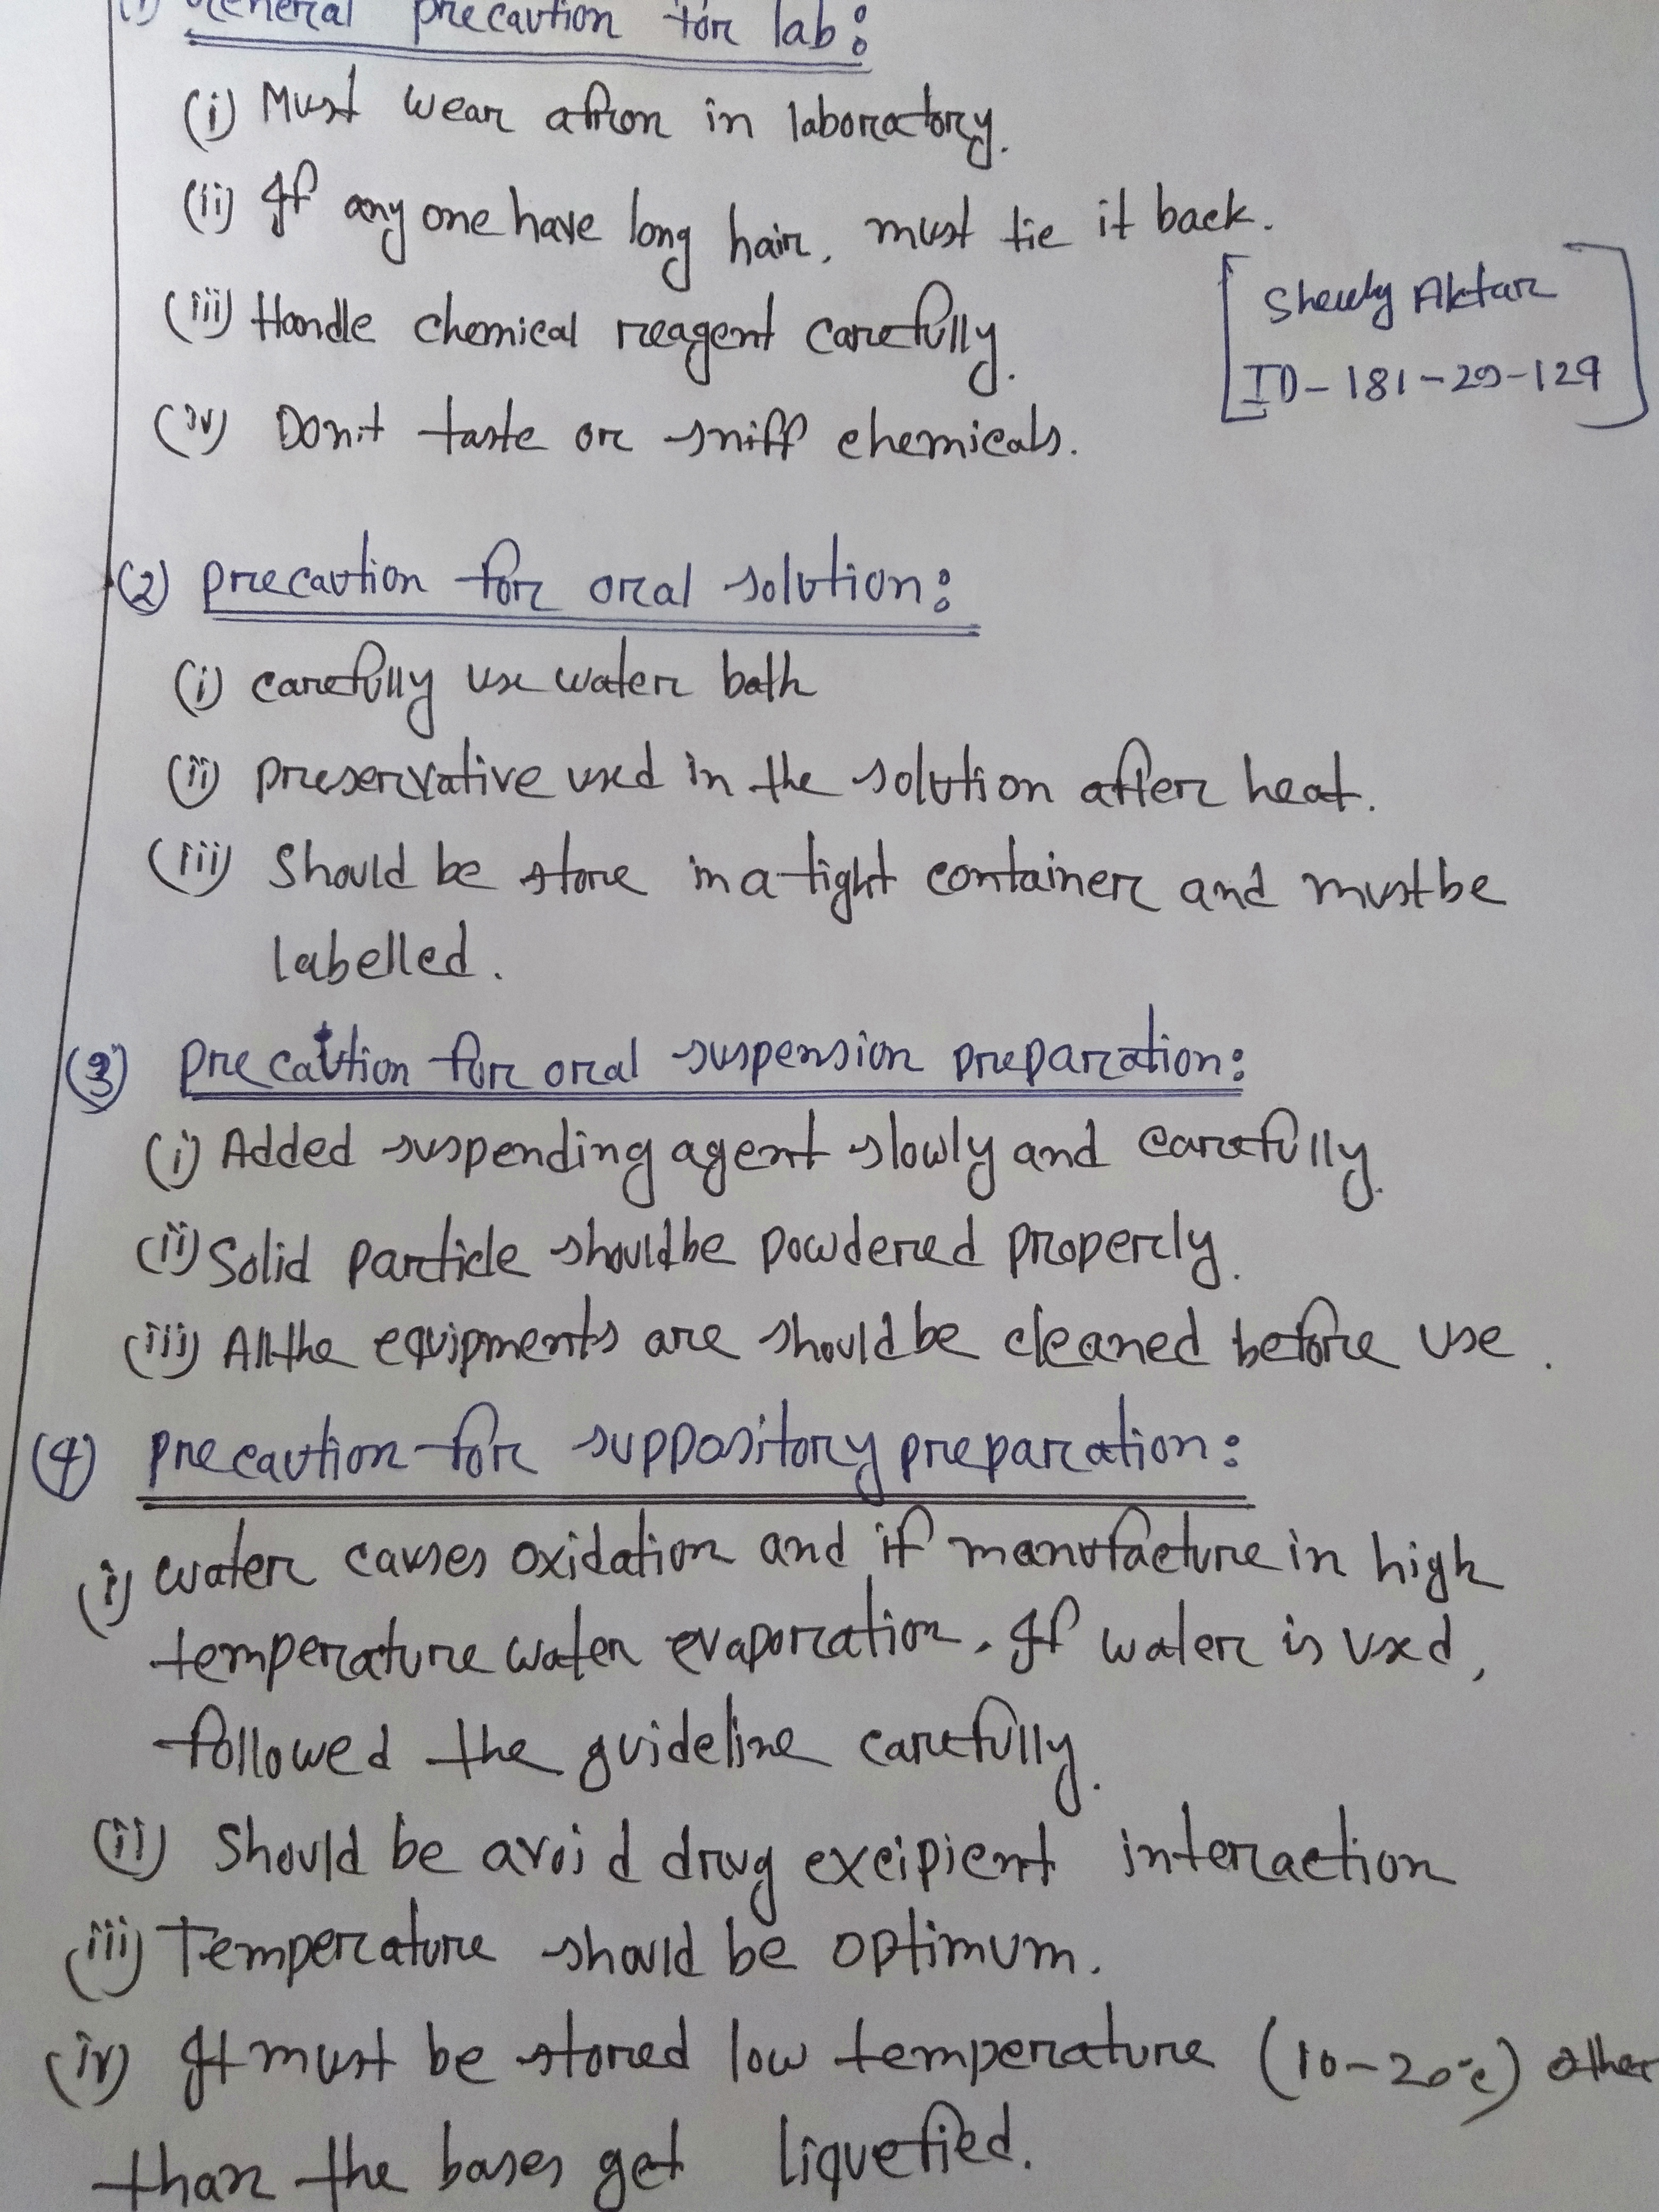 (1) General precaution for lab:
(i) Must wear afron in laboratory.
(ii) If any one have long hair, must tie it back.
[Sheuly Aktar
ID-181-29-129]
(iii) Handle chemical reagent carefully.
(iv) Don't taste or sniff chemicals.
(2) precaution for oral solution:
(i) carefully use water bath
(ii) preservative used in the solution after heat.
(iii) Should be store in a tight container and must be
labelled.
(3) precaution for oral suspension preparation:
(i) Added suspending agent slowly and carefully.
(ii) Solid particle should be powdered properly.
(iii) All the equipments are should be cleaned before use.
(4) precaution for suppository preparation:
(i) water causes oxidation and if manufacture in high
temperature water evaporation. If water is used,
followed the guideline carefully.
(ii) Should be avoid drug excipient interaction
(iii) Temperature should be optimum.
(iv) It must be stored low temperature (10-20°c) other
than the bases get liquefied.